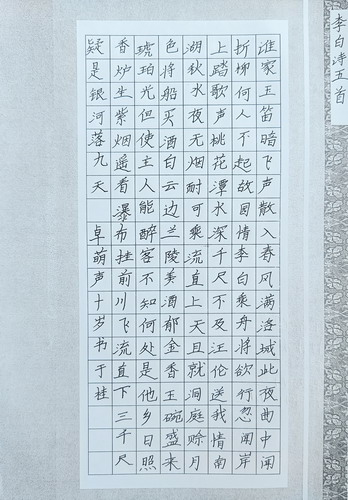 李白诗五首
谁家玉笛暗飞声散入春风满洛城此夜曲中闻
折柳何人不起故园情李白乘舟将欲行忽闻岸
上踏歌声桃花潭水深千尺不及汪伦送我情南
湖秋水夜无烟耐可乘流直上天且就洞庭赊月
色将船买酒白云边兰陵美酒郁金香玉碗盛来
琥珀光但使主人能醉客不知何处是他乡日照
香炉生紫烟遥看瀑布挂前川飞流直下三千尺
疑是银河落九天 卓萌声十岁书于桂